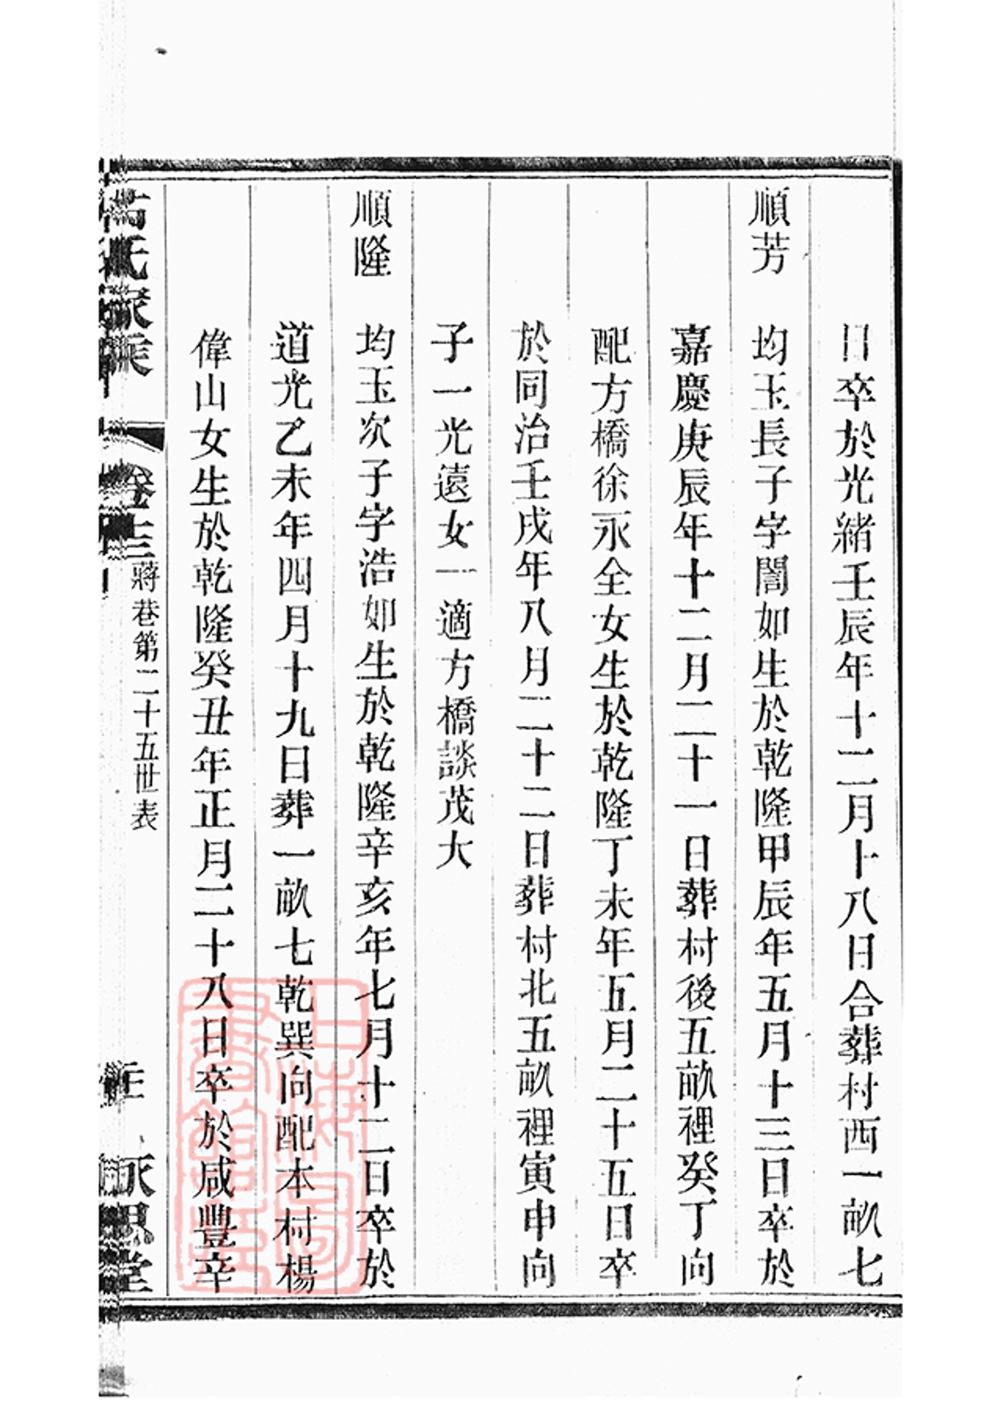 日卒於光緒壬辰年十二月十八日合葬村西一畝七
順芳
均玉長子字誾如生於乾隆甲辰年五月十三日卒於
嘉慶庚辰年十二月二十一日葬村後五畝裡癸丁向
配方橋徐永全女生於乾隆丁未年五月二十五日卒
於同治壬戌年八月二十二日葬村北五畝裡寅申向
子一光遠女一適方橋談茂大
順隆
均玉次子字浩如生於乾隆辛亥年七月十二日卒於
道光乙未年四月十九日葬一畝七乾巽向配本村楊
偉山女生於乾隆癸丑年正月二十八日卒於咸豐辛
氏家乘
卷十三
蔣巷第二十五世表
永思堂
上海圖書館藏